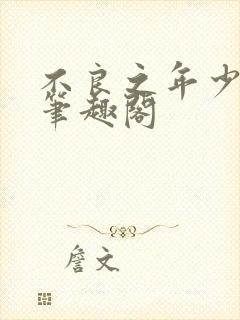 不良之年少
筆趣閣
詹文